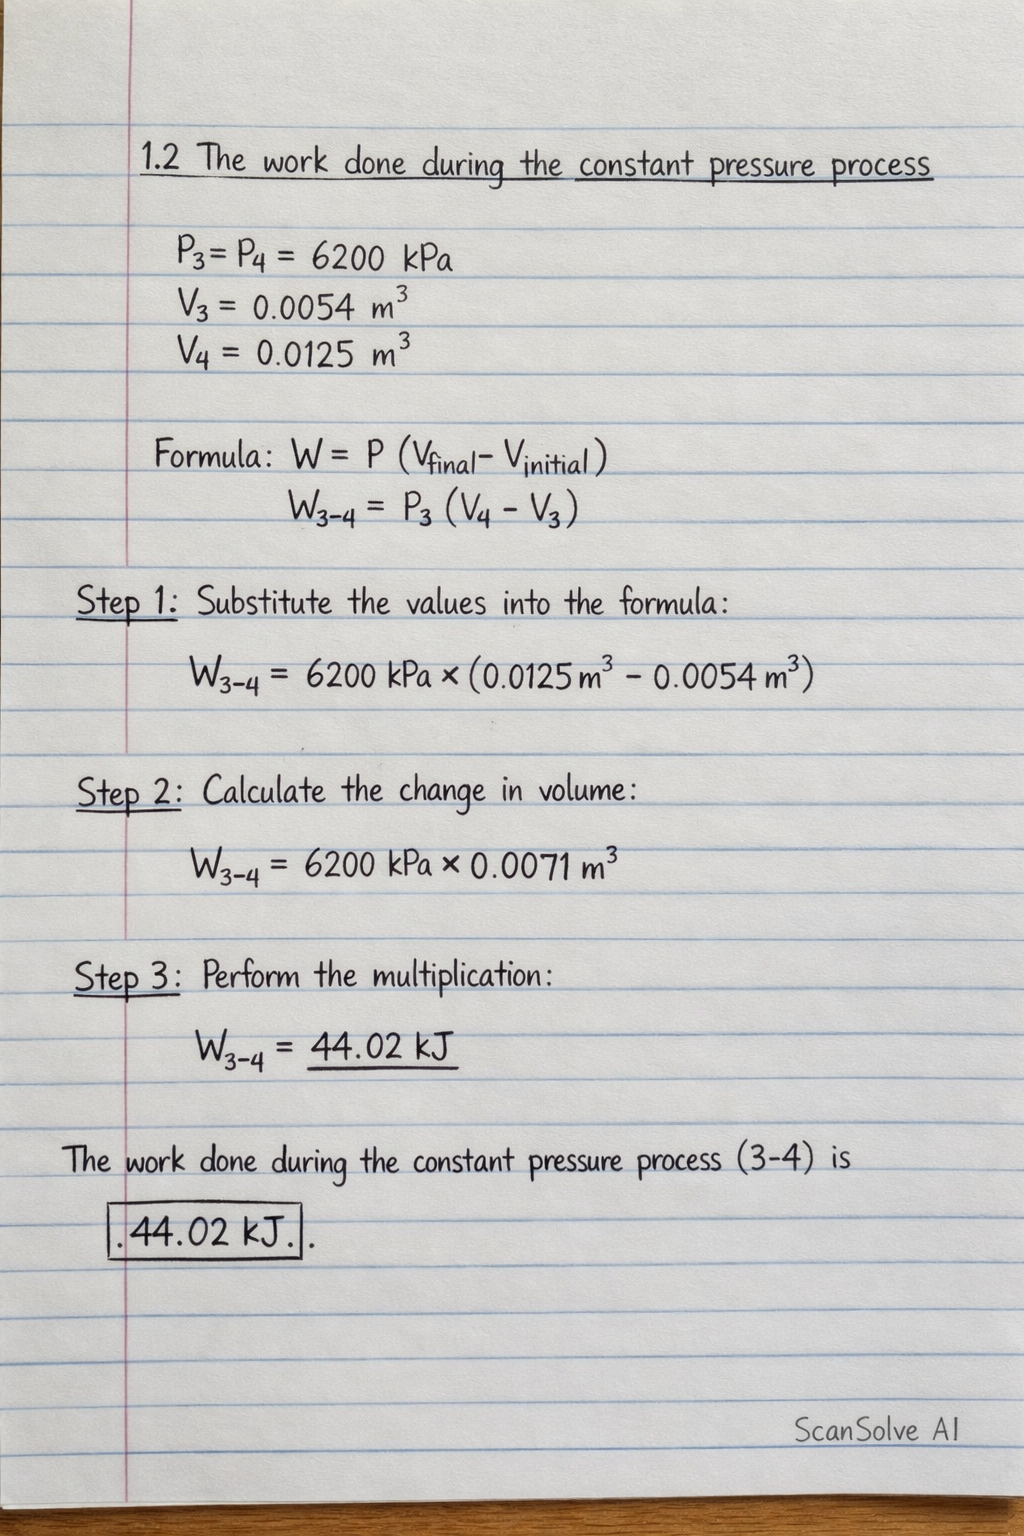 1.2 The work done during the constant pressure process
P₃ = P₄ = 6200 kPa
V₃ = 0.0054 m³
V₄ = 0.0125 m³
Formula: W = P (Vfinal - Vinitial)
W₃₋₄ = P₃ (V₄ - V₃)
Step 1: Substitute the values into the formula:
W₃₋₄ = 6200 kPa × (0.0125 m³ - 0.0054 m³)
Step 2: Calculate the change in volume:
W₃₋₄ = 6200 kPa × 0.0071 m³
Step 3: Perform the multiplication:
W₃₋₄ = 44.02 kJ
The work done during the constant pressure process (3-4) is
.44.02 kJ..
ScanSolve AI